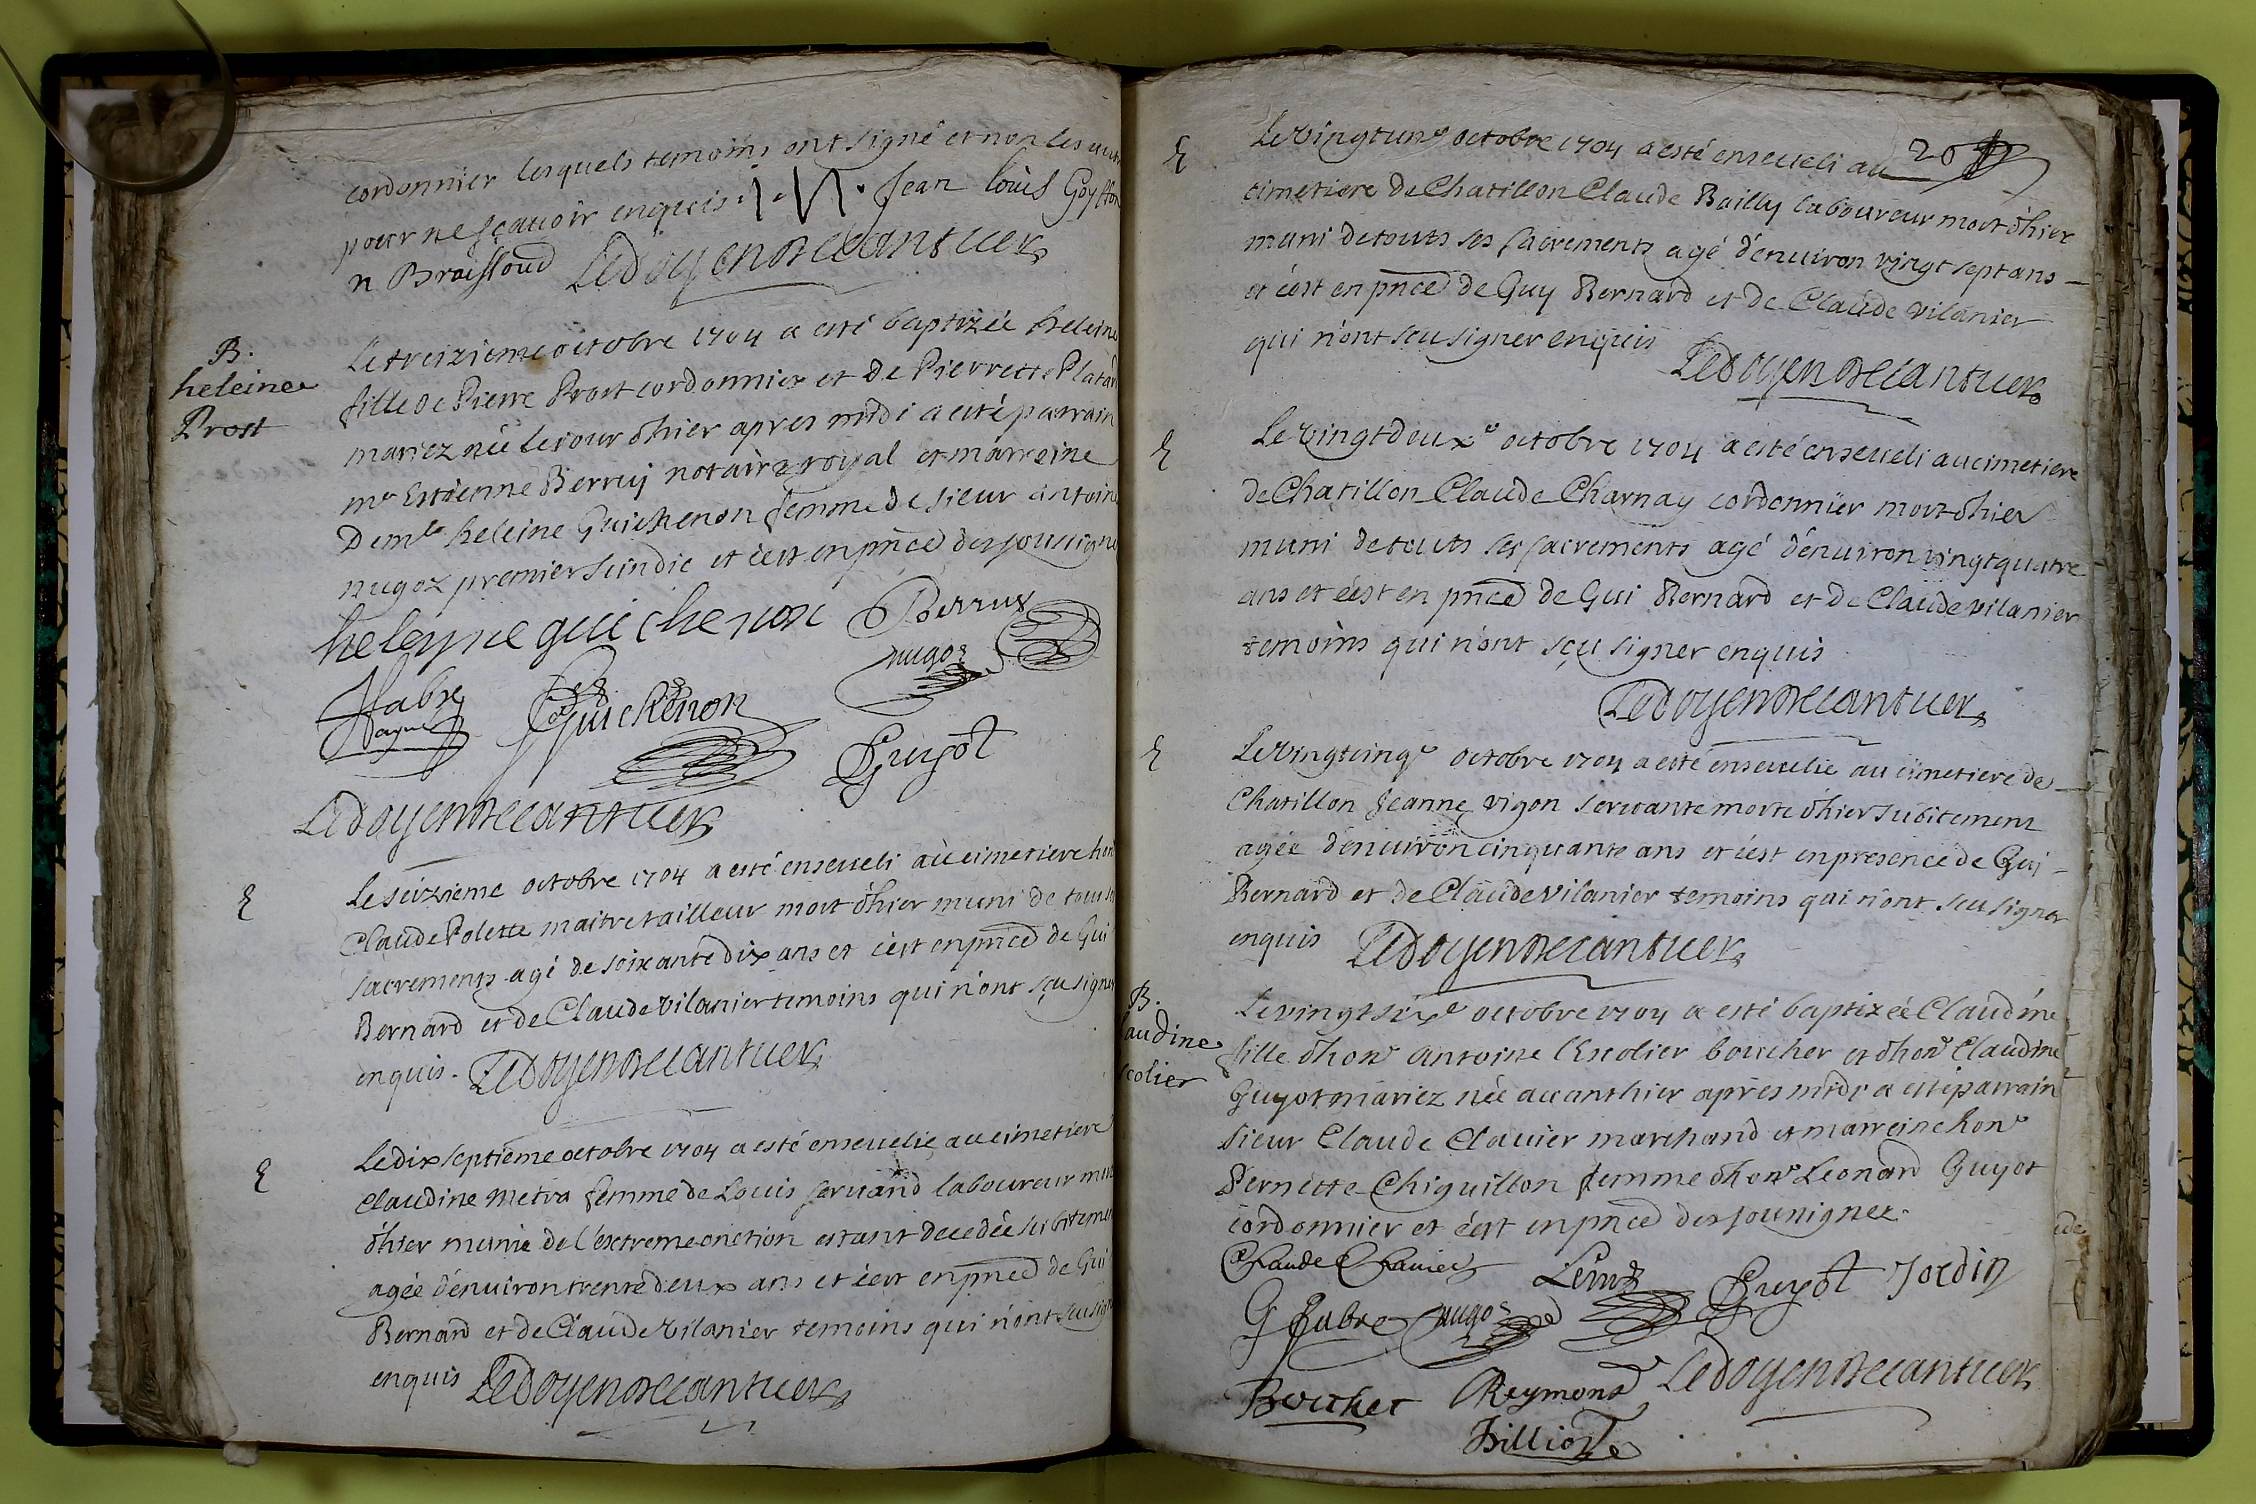 cordonnier lesquels temoins ont signé et non les autr
pour ne sçavoir enquis. Jean loüis Goyffon
n Braissoud Ledoyen Decantuer
B.
heleine
Prost
Le treizieme octobre 1704 a esté baptizée heleine
fille de Pierre Prost cordonnier et de Pierrette Platard
mariez née le iour d'hier apres midi a esté parrain
mr Estienne Berruy notaire royal et marreine
Demlle heleine Guichenon femme de sieur Antoine
nugoz premier sindic et c'est en pnce des soussigne
heleyne guichenon Perrux
nugoz
Fabre Guichenon
Guyot
Ledoyen Decantuer
E
Le seizieme octobre 1704 a esté enseveli au cimetiere hon
Claude Polette maitre tailleur mort d'hier muni de tous s
sacrements agé de soixante dix ans et c'est en pnce de Gui
Bernard et de Claude Vilanier temoins qui n'ont sçu signer
enquis. Ledoyen Decantuer
E
Le dix septieme octobre 1704 a esté ensevelie au cimetiere
Claudine metra femme de Louis servand laboureur mor
d'hier munie de l'extreme onction estant decedée subitemen
agée d'environ trente deux ans et c'est en pnce de Gui
Bernard et de Claude Vilanier temoins qui n'ont seu sign
enquis Ledoyen Decantuer
20
E
Le vingtune octobre 1704 a esté enseveli au
cimetiere de Chatillon Claude Bailly laboureur mort d'hier
muni de touts ses sacrements agé d'environ vingt sept ans
et c'est en pnce de Guy Bernard et de Claude vilanier
qui n'ont seu signer enquis
Ledoyen Decantuer
E
Le vingtdeuxe octobre 1704 a esté enseveli au cimetiere
de Chatillon Claude Charnay cordonnier mort d'hier
muni de touts ses sacrements agé d'environ vingtquatre
ans et c'est en pnce de Gui Bernard et de Claude vilanier
temoins qui n'ont sçu signer enquis
Ledoyen Decantuer
E
Le vingtcinqe octobre 1704 a esté ensevelie au cimetiere de
Chatillon Jeanne vigon servante morte d'hier subitement
agée d'environ cinquante ans et c'est en presence de Gui
Bernard et de Claude Vilanier temoins qui n'ont seu signer
enquis Ledoyen Decantuer
B.
audine
scolier
Le vingtsixe octobre 1704 a esté baptizée Claudine
fille d'hone antoine l'Escolier boucher et d'hone Claudine
Guyot mariez née avanthier apres midi a esté parrain
sieur Claude Clavier marchand et marreine hone
Pernette Chiquillon femme d'hone Leonard Guyot
cordonnier et c'est en pnce des sousignez.
Claude Clavier Guyot Jordin
G Fabre nugoz
Ledoyen Decantuer
Bouchet Reymond
Filliot